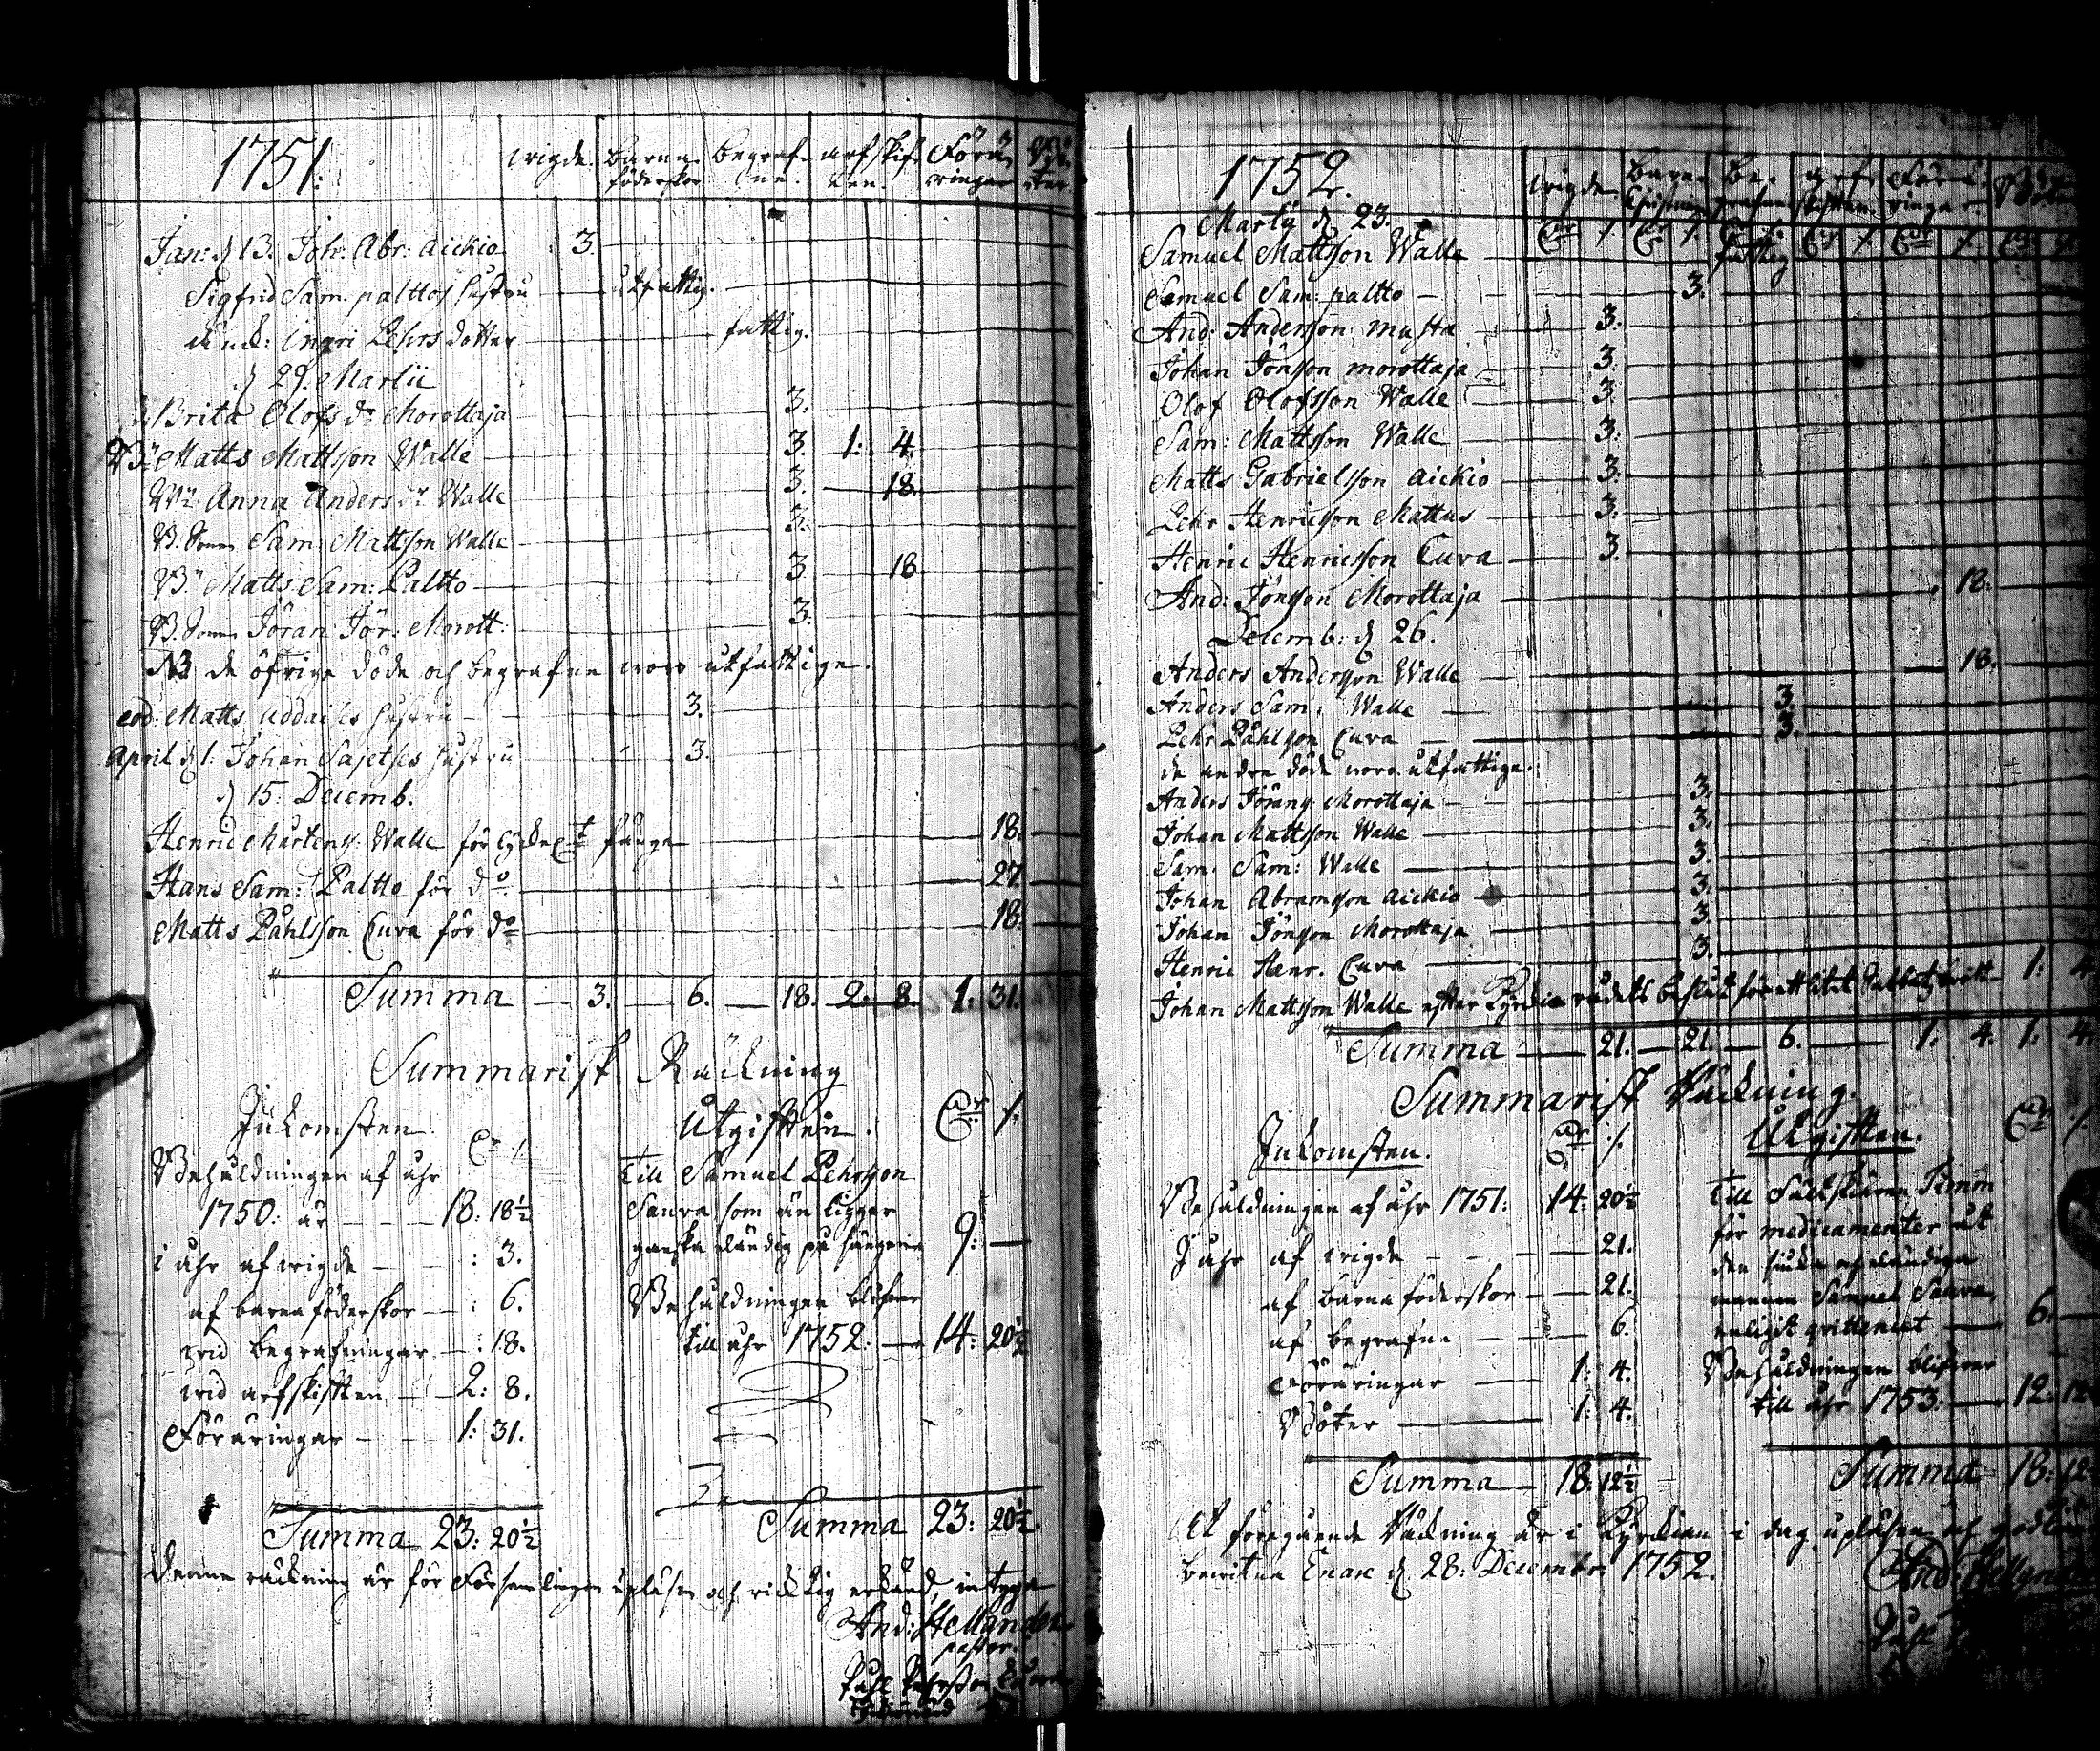 1751.
wigde. barna föderskor begrafne. arfskiften. Föräringar
Jan: d 13. Joh: Abr: Aickio 3.
Sigfrid Sam. palttos hustru utfattig.
Enck: Ingri Pehrs dotter fattig.
d 29. Martii
Brita Olofs dr Morottaja 3.
Matts Mattsson Walle 3. 1: 4.
Anna Anders dr Walle 3. 18.
Sam: Mattsson Walle 3.
Matts Sam: Paltto 3. 18
Jöran Jör. Morott: 3.
NB de öfrige döde och begrafne woro utfattige.
eod: Matts uddailes hustru 3.
April d 1. Johan Sajetses hustru 3.
d 15. Decemb.
Henric Mårtens. Walle för 18.
Hans Sam: Paltto för do 27
Matts Påhlsson Cuva för do 18.
Summa 3. 6. 18. 2: 8. 1: 31.
Summarisk Räckning
Inkomsten.
Behåldningen af åhr
1750: är 18: 18½
i åhr af wigde : 3.
af barnaföderskor : 6.
wid begrafningar : 18.
wid arfskiften 2: 8.
Föräringar 1: 31.
Summa 23: 20½
Utgiften.
Till Samuel Pehrsson
Saura som än ligger
ganska eländig på sängena 9: —
Behåldningen blifwer
till åhr 1752: 14: 20½
Summa 23: 20½.
Denne räckning är för Församlingen upläsen och richtig erkänd, intyga
And: Hellander
pastor.
1752.
wigde. Barna
Martii d 23.
Samuel Mattsson Walle fattig
Samuel Sam: paltto 3.
And: Andersson musta 3.
Johan Jönsson morottaja 3.
Olof Olofsson Walle 3.
Sam: Mattsson Walle 3.
Matts Gabrielsson Aickio 3.
Pehr Henricsson Mattus 3.
Henric Henricsson Cuva 3.
And: Jönsson Morottaja 18.
Decemb: d 26.
Anders Andersson Walle 18.
Anders Sam: Walle 3.
Pehr Påhlsson Cuva 3.
de andre döde woro utfattige.
Anders Jörans. Morottaja 3.
Johan Mattsson Walle 3.
Sam: Sam: Walle 3.
Johan Abramsson Aickio 3.
Johan Jönsson Morottaja 3.
Henric Henr. Cuva 3.
Johan Mattsson Walle efter Kyrckio rådets beslut för 1: 4
Summa 21. 21. 6. 1: 4. 1: 4.
Summarisk Räckning.
Inkomsten.
Behåldningen af åhr 1751: 14: 20½
I åhr af wigde 21.
af barnaföderskor 21.
af begrafne 6.
Föräringar 1: 4.
Böter 1: 4.
Summa 18: 12½
Utgiften.
Till Fältskären
för medicamenter åt
den siuka och eländiga
mannen Samuel Saura,
enligit qvittencet 6: —
Behåldningen blifwer
till åhr 1753: 12: 12
Summa 18: 12
At föregående Räckning är i Kyrckian i dag upläsen och
Enare d. 28: Decembr: 1752.
And: Hellander